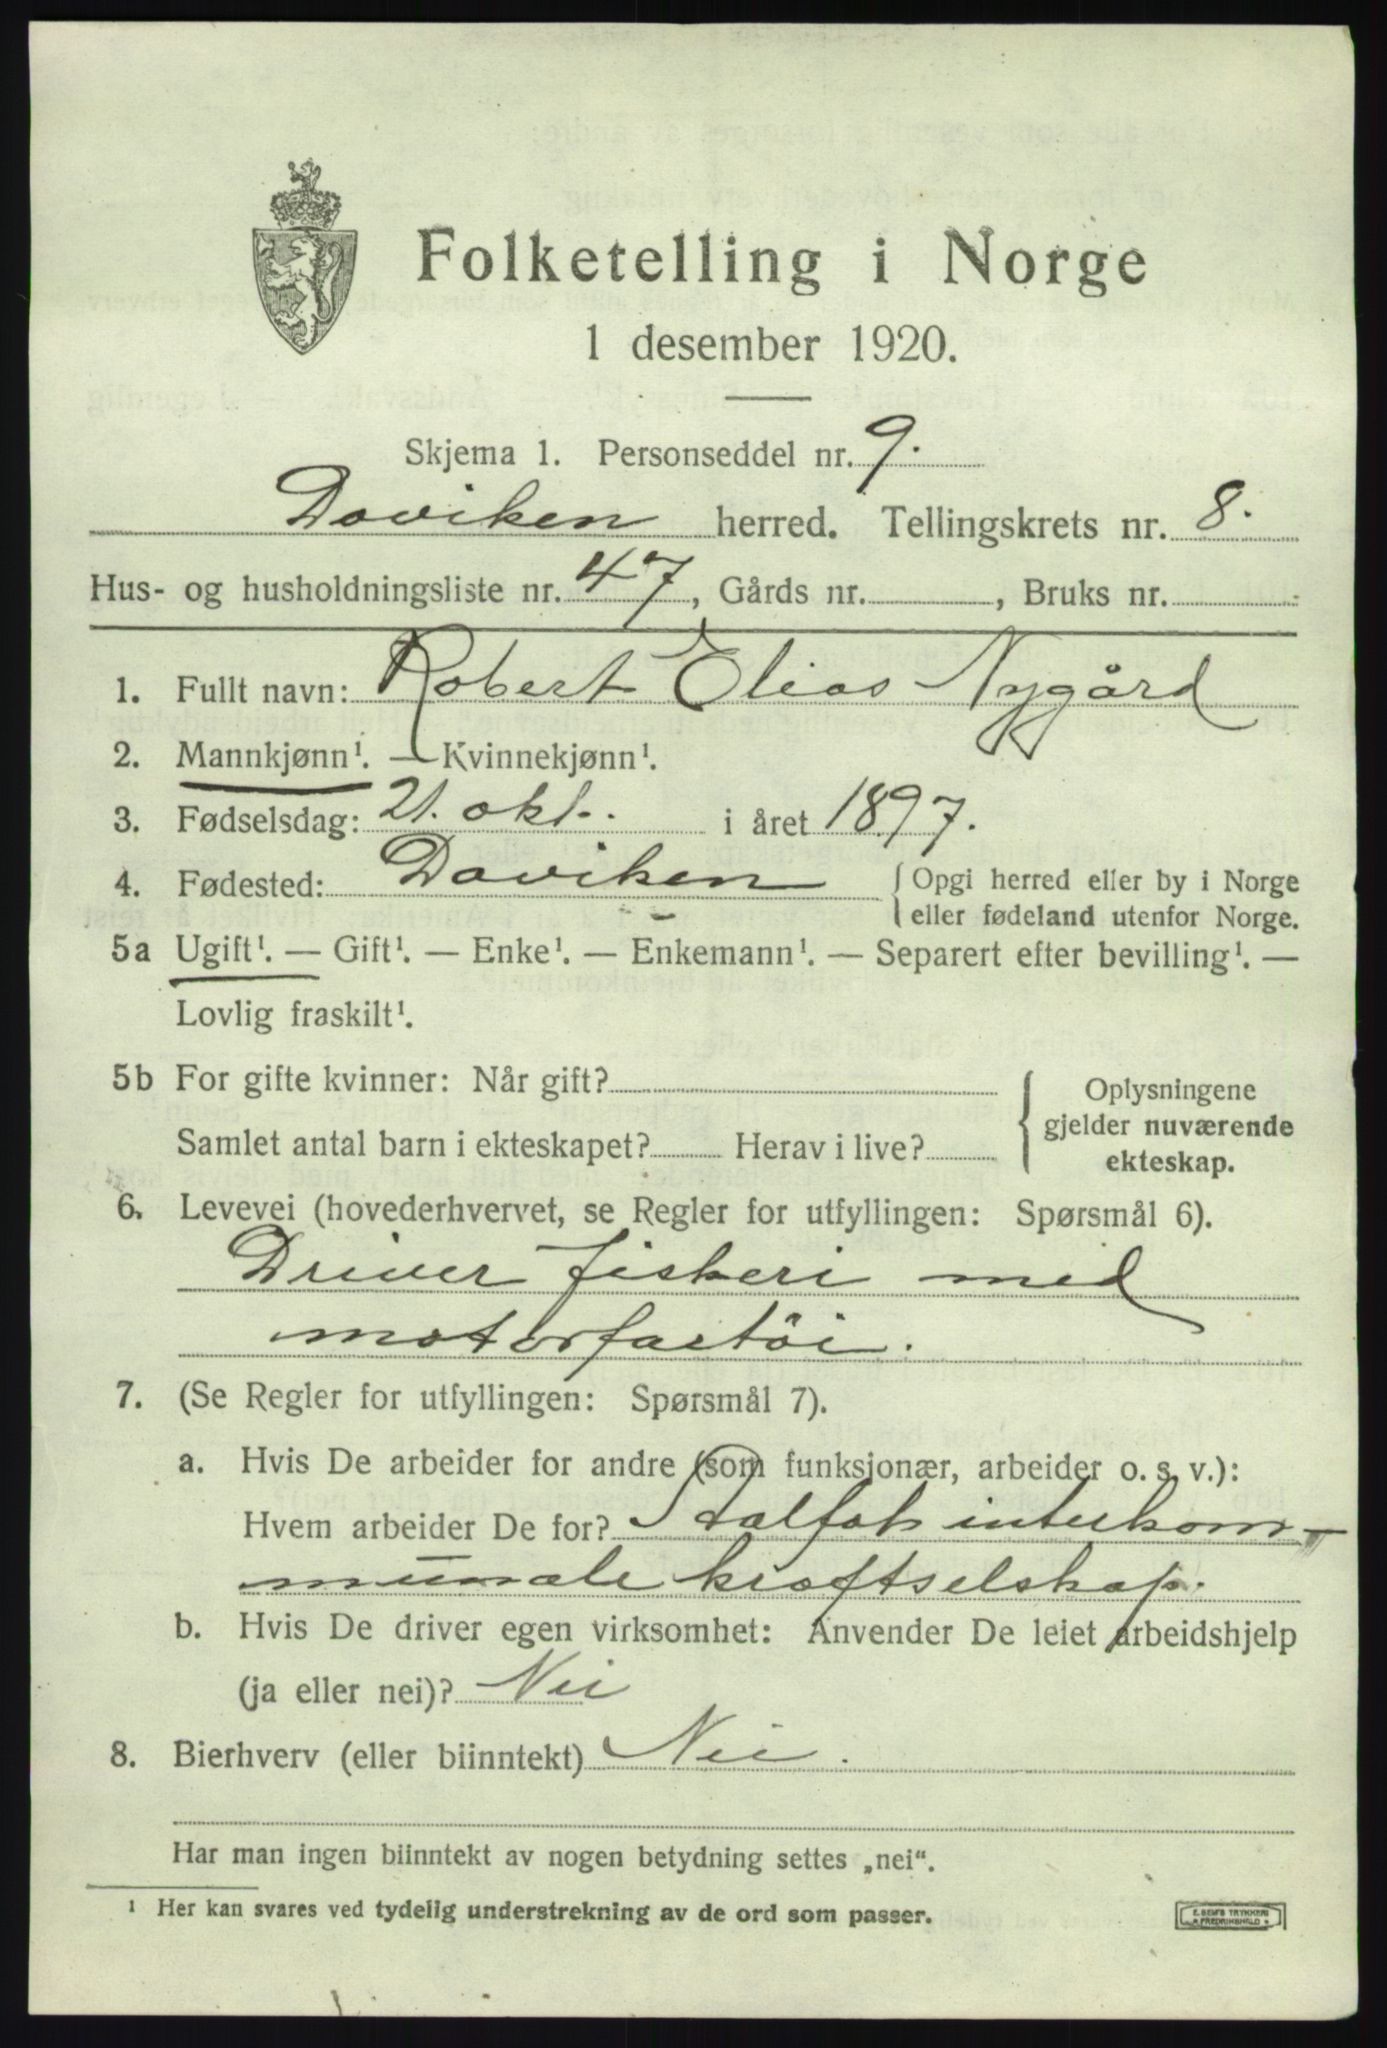 Folketelling i Norge
1 desember 1920.
Skjema 1. Personseddel nr. 9.
Daviken herred. Tellingskrets nr. 8.
Hus- og husholdningsliste nr. 47, Gårds nr. , Bruks nr.
1. Fullt navn: Robert Elias Nygård
2. Mannkjønn¹. — Kvinnekjønn¹.
3. Fødselsdag: 21. okt. i året 1897.
4. Fødested: Daviken { Opgi herred eller by i Norge
eller fødeland utenfor Norge.
5a Ugift¹. — Gift¹. — Enke¹. — Enkemann¹. — Separert efter bevilling¹. —
Lovlig fraskilt¹.
5b For gifte kvinner: Når gift? { Oplysningene
gjelder nuværende
Samlet antal barn i ekteskapet? Herav i live?
ekteskap.
6. Levevei (hovederhvervet, se Regler for utfyllingen: Spørsmål 6).
Driver fiskeri med
motorfartöi.
7. (Se Regler for utfyllingen: Spørsmål 7).
a. Hvis De arbeider for andre (som funksjonær, arbeider o. s. v.):
Hvem arbeider De for? interkom-
munale kraftselskap.
b. Hvis De driver egen virksomhet: Anvender De leiet arbeidshjelp
(ja eller nei)? Nei
8. Bierhverv (eller biinntekt) Nei.
Har man ingen biinntekt av nogen betydning settes „nei“.
¹ Her kan svares ved tydelig understrekning av de ord som passer.
E. SEM'S TRYKKERI
FREDRIKSHALD